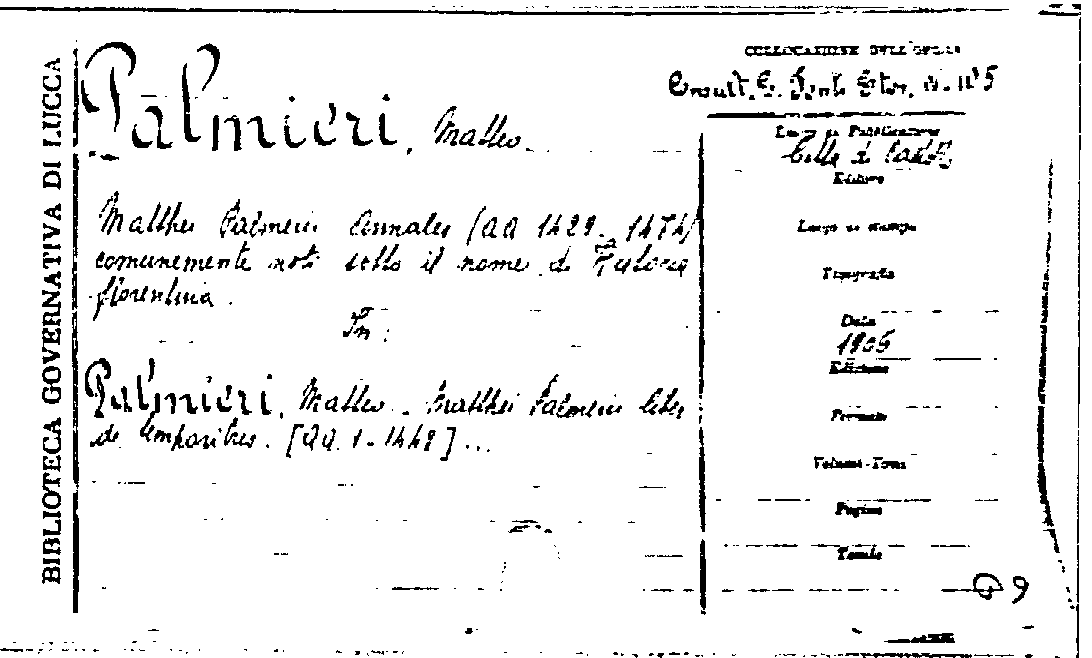 BIBLIOTECA GOVERNATIVA DI LUCCA
Palmieri, Matteo
Matthei Palmerii Annales (AA 1429 - 1474)
comunemente noti sotto il nome di Historia
fiorentina.
In:
Palmieri, Matteo. Matthei Palmerii liber
de temporibus. [AA. 1-1448] ...
COLLOCAZIONE DELL'OPERA
Luogo di Pubblicazione
Città di Castello
Editore
Luogo di stampa
Tipografia
Data
1906
Edizione
Formato
Volumi-Tomi
Pagine
Tavole
9